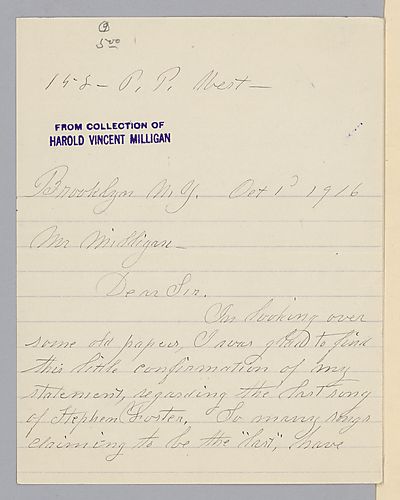 9
5.00
158 - P. P. West -
FROM COLLECTION OF
HAROLD VINCENT MILLIGAN
Brooklyn N.Y. Oct 1st 1916
Mr Milligan -
Dear Sir.
In looking over
some old papers, I was glad to find
this little confirmation of my
statement, regarding the last song
of Stephen Foster. So many songs
claiming to be the "last", have